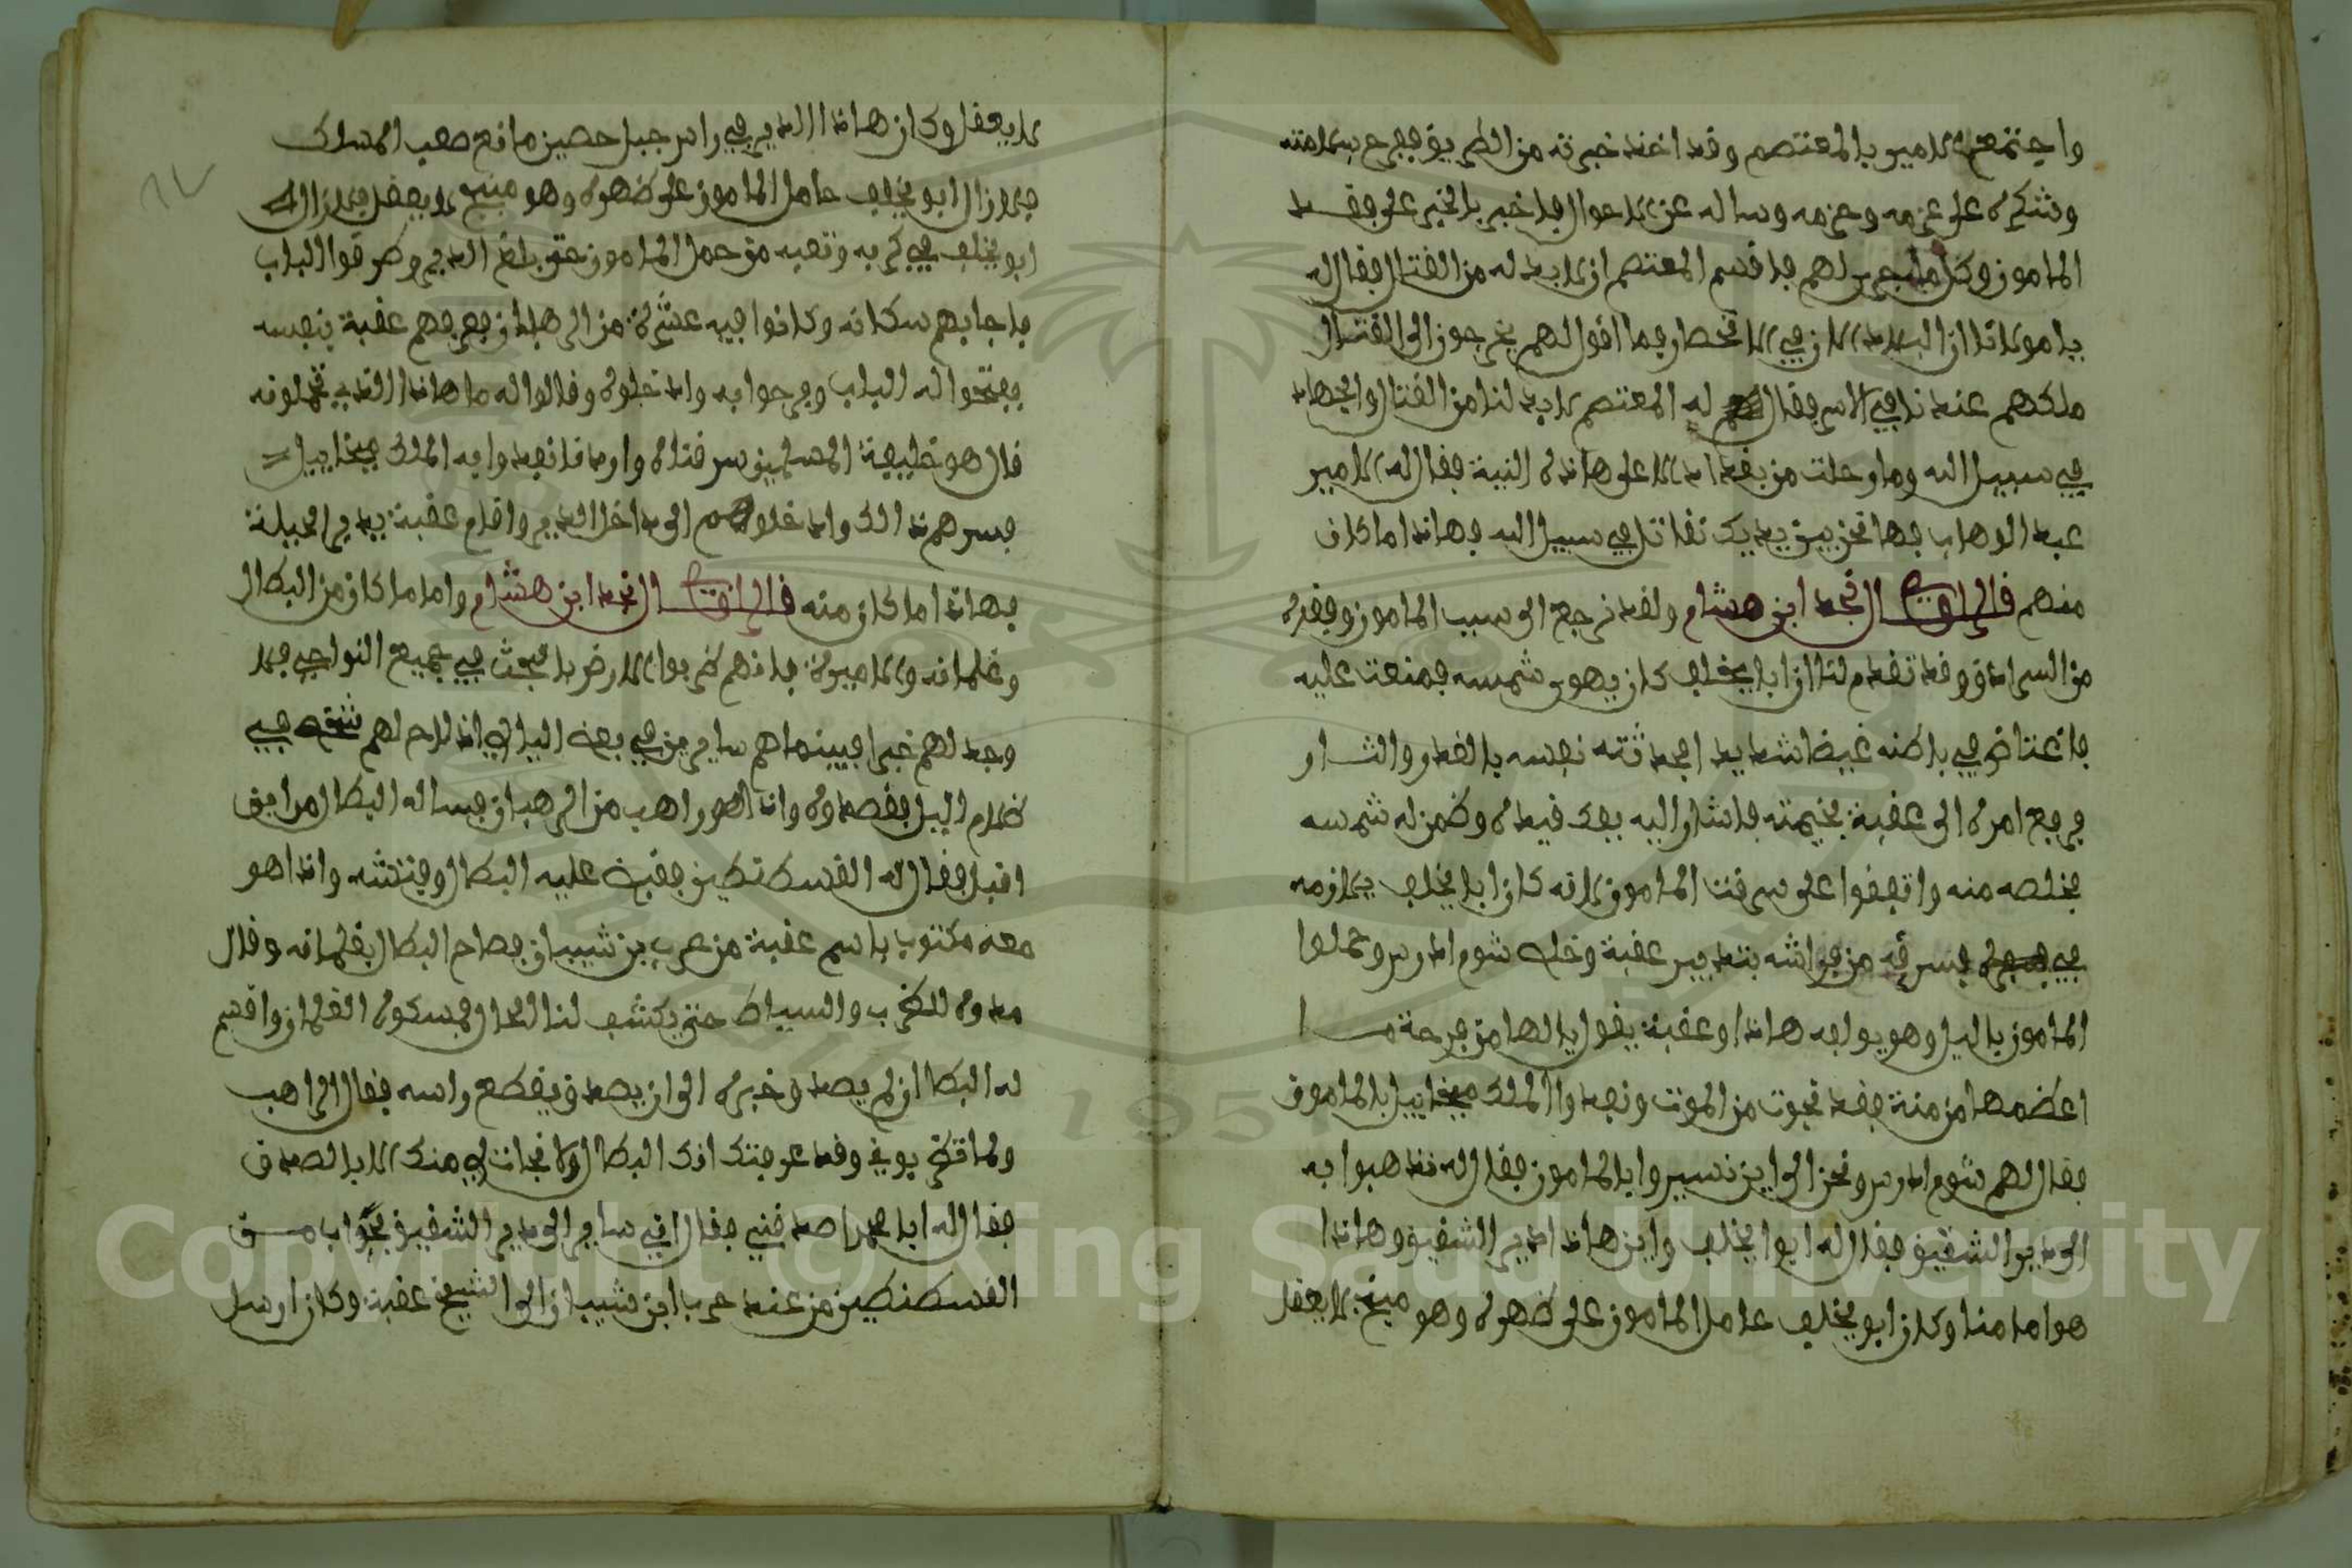 واجتمع الامير بالمعتصم وقد اخذ خبرته من الطريق ففرح بسلامته
وشكره على عزمه وحزمه وساله عن الاحوال فاخبر بالخبر على فقد
المامون وكل ما جرى لهم فاقسم المعتصم ان لا بد له من القتال فقال له
يا مولانا ان البلاد الان في الانحصار وما اقول لهم يخرجون الى القتال
ملكهم عندنا في الاسر فقال له المعتصم لا بد لنا من القتال والجهاد
في سبيل الله وما رحلت من بغداد الا على هاذه النية فقال له الامير
عبد الوهاب فها نحن بين يديك نقاتل في سبيل الله فهاذا ما كان
منهم قال الراوي الـ نجد ابن هشام ولقد نرجع الى سبب المامون وفقده
من السرادق وقد تقدم لنا ان ابا يخلف كان يهوى شمسه فمنعت عليه
فاغتاض في باطنه غيضا شديد فحدثته نفسه بالغدر والثار
فرجع امره الى عقبة بخيمته فاشار اليه بفك قيده وضمن له شمسه
يخلصه منه واتفقوا على سرقت المامون لانه كان ابا يخلف يلازمه
في فسرقه من فراشه بتدبير عقبة وتحل شوم ادرس وحملوا
المامون بالليل وهو يولعه هاذا وعقبة يقول يالها من فرحة ما
اعضمها من منة فقد نجوت من الموت ونعدوا الملك ميخاييل بالمامون
فقال لهم شوم ادرس ونحن الى اين نسيروا بالمامون فقال له نذهبوا به
الى دير الشقيق فقال له ابوا يخلف واين هاذا الدير الشقيق وهاذا
هو امامنا وكان ابو يخلف حامل المامون على ضهره وهو مبنج لا يعقل
لا يعقل وكان هاذا الدير في راس جبل حصين مانع صعب المسلك
فلا زال ابو يخلف حامل المامون على ضهره وهو مبنج لا يعقل فلا زال
ابو يخلف في كربه وتعبه من حمل المامون حتى بلغ الدير وطرقوا الباب
فاجابهم سكانه وكانوا فيه عشرة من الرهبان فعرفهم عقبة بنفسه
ففتحوا له الباب وفرحوا به وادخلوه وقالوا له ما هاذا الذي تحملونه
قال هو خليفة المسلمين سرقناه واردنا نعدوا به الملك ميخاييل
فسرهم ذالك وادخلوهم الى داخل الدير واقام عقبة يدير الحيلة
فهاذا ما كان منه قال الراوي الـ نجد ابن هشام واما ما كان من البطال
وغلمانه والاميرة فانهم ضربوا الارض بالبحث في جميع النواحي فلا
وجد لهم خبرا فبينما هم سايرين في بعض الليالي اذ لاح لهم شخص في
ضلام الليل فقصدوه واذا هو راهب من الرهبان فساله البطال من اين
اقبل فقال له القسطنطين فقبض عليه البطال وفتشه واذا هو
معه مكتوب باسم عقبة من عرب بن شيبان فصاح البطال بغلمانه وقال
مدوه للضرب والسياط حتى يكشف لنا الحال فمسكوه الغلمان واقسم
له البطال ان لم يصدق وخبره الى ان يصدق ويقطع راسه فقال الراهب
ولما تضربوني وقد عرفتك انك البطال ولا نجات لي منك الا بالصدق
فقال له ابا محمد اصدقني فقال اني ساير الى دير الشقيق بجواب من
القسطنطين من عند عرب ابن شيبان الى الشيخ عقبة وكان ارسل